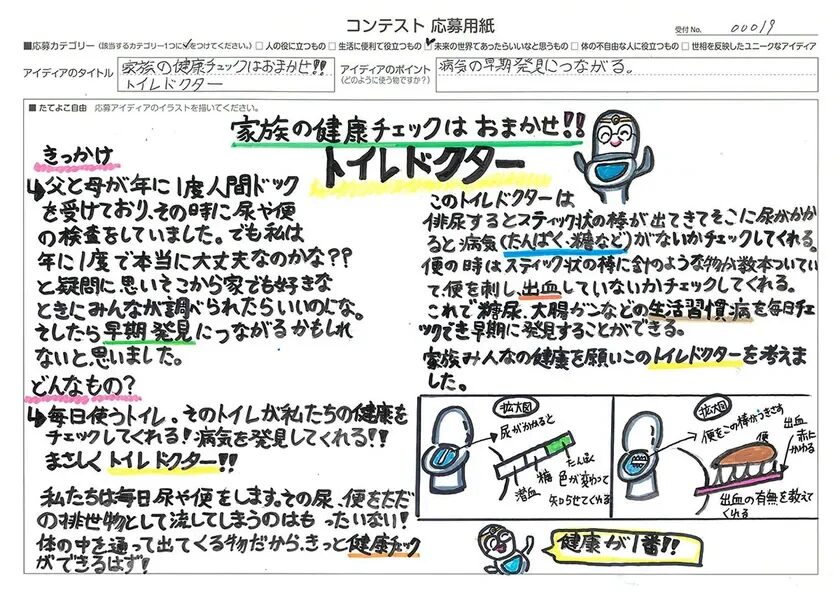 コンテスト 応募用紙
受付No. 00019
■応募カテゴリー（該当するカテゴリー1つに✓をつけてください。） □ 人の役に立つもの □ 生活に便利で役立つもの ☑ 未来の世界であったらいいなと思うもの □ 体の不自由な人に役立つもの □ 世相を反映したユニークなアイディア
アイディアのタイトル
家族の健康チェックはおまかせ!!
トイレドクター
アイディアのポイント
（どのように使う物ですか？）
病気の早期発見につながる。
■ たてよこ自由 応募アイディアのイラストを描いてください。
家族の健康チェックは おまかせ!!
トイレドクター
きっかけ
↳父と母が年に1度人間ドック
を受けており、その時に尿や便
の検査をしていました。でも私は
年に1度で本当に大丈夫なのかな??
と疑問に思いてこから家でも好きな
ときにみんなが調べられたらいいのにな。
そしたら早期発見につながるかもしれ
ないと思いました。
どんなもの?
↳毎日使うトイレ。そのトイレが私たちの健康を
チェックしてくれる!病気を発見してくれる!!
まさしくトイレドクター!!
私たちは毎日尿や便をします。その尿、便をただ
の排世物として流してしまうのはもったいない!
体の中を通って出てくる物だから、きっと健康チェック
ができるはず!
このトイレドクターは
俳尿するとスティック状の棒が出てきてそこに尿がかか
ると病気(たんぱく、糖など)がないかチェックしてくれる。
便の時はスティック状の棒に針のような物が数本ついてい
て、便を刺し、出血していないかチェックしてくれる。
これで糖尿、大腸ガンなどの生活習慣病を毎日チェ
ックでき早期に発見することができる。
家族みんなの健康を願いこのトイレドクターを考えま
した。
拡大図
尿がかかると
たんぱく
糖
潜血
色が変わって
知らせてくれる
拡大図
便をこの棒がつきさす
便
出血
赤に
かわる
出血の有無を教えて
くれる
健康が1番!!